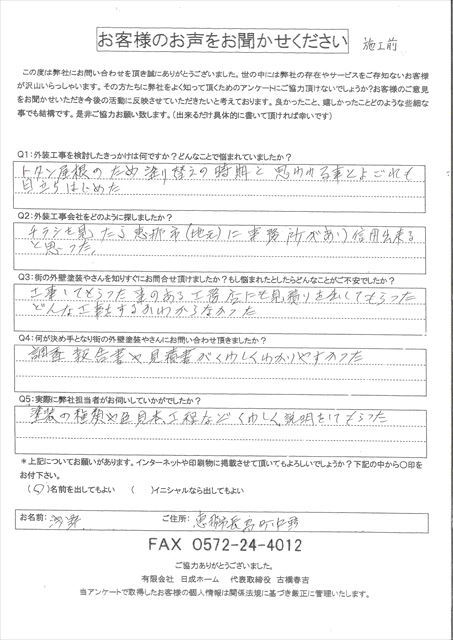 お客様のお声をお聞かせください 施工前
この度は弊社にお問い合わせを頂き誠にありがとうございました。世の中には弊社の存在やサービスをご存知ないお客様
が沢山いらっしゃいます。その方たちに弊社をよく知って頂くためのアンケートにご協力頂けないでしょうか?お客様のご意見
をお聞かせいただき今後の活動に反映させていただきたいと考えております。良かったこと、嬉しかったことどのような些細な
事でも結構です。是非ご協力お願い致します。(出来るだけ具体的に書いて頂ければ幸いです)
Q1:外装工事を検討したきっかけは何ですか?どんなことで悩まれていましたか?
トタン屋根のため塗り替えの時期と思われる事とよごれも
目立ちはじめた
Q2:外装工事会社をどのように探しましたか?
チラシを見たら恵那市(地元)に事務所があり信用出来る
と思った
Q3:街の外壁塗装やさんを知りすぐにお問合せ頂けましたか?もし悩まれたとしたらどんなことがご不安でしたか?
工事してもらった事のある工務店にも見積りを出してもらった
どんな工事をするのかわからなかった
Q4:何が決め手となり街の外壁塗装やさんにお問い合わせ頂きましたか?
調査報告書や見積書がくわしくわかりやすかった
Q5:実際に弊社担当者がお伺いしていかがでしたか?
塗装の種類や色見本、工程などくわしく説明をしてもらった
*上記についてお願いがあります。インターネットや印刷物に掲載させて頂いてもよろしいでしょうか?下記の中から〇印を
お付下さい。
(〇)名前を出してもよい ( )イニシャルなら出してもよい
お名前: ご住所: 恵那市長島町中野
FAX 0572-24-4012
ご協力ありがとうございました。
有限会社 日成ホーム 代表取締役 古橋春吉
当アンケートで取得したお客様の個人情報は関係法規に基づき厳正に管理いたします。